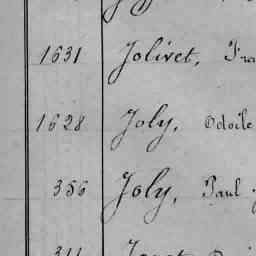 1631 Jolivet, Fra
1628 Joly, Odoile
356 Joly, Paul
311